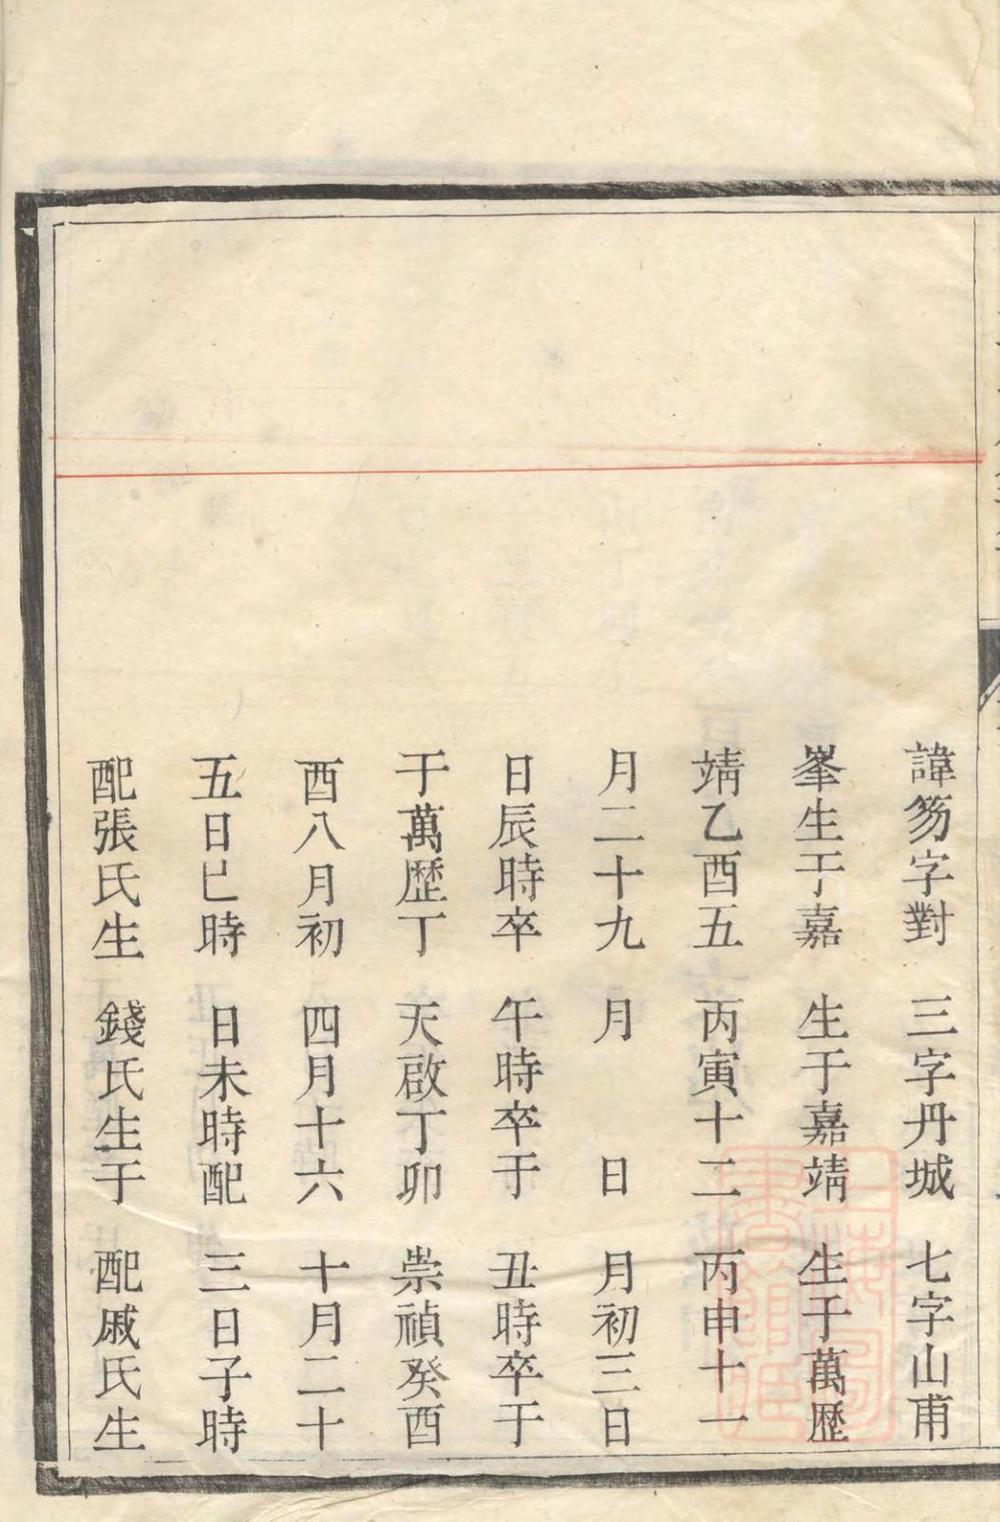 諱笏字對
峯生于嘉
靖乙酉五
月二十九
日辰時卒
于萬歷丁
酉八月初
五日巳時
配張氏生
三字丹城
生于嘉靖
丙寅十二
月　日
午時卒于
天啟丁卯
四月十六
日未時配
錢氏生于
七字山甫
生于萬歷
丙申十一
月初三日
丑時卒于
崇禎癸酉
十月二十
三日子時
配戚氏生